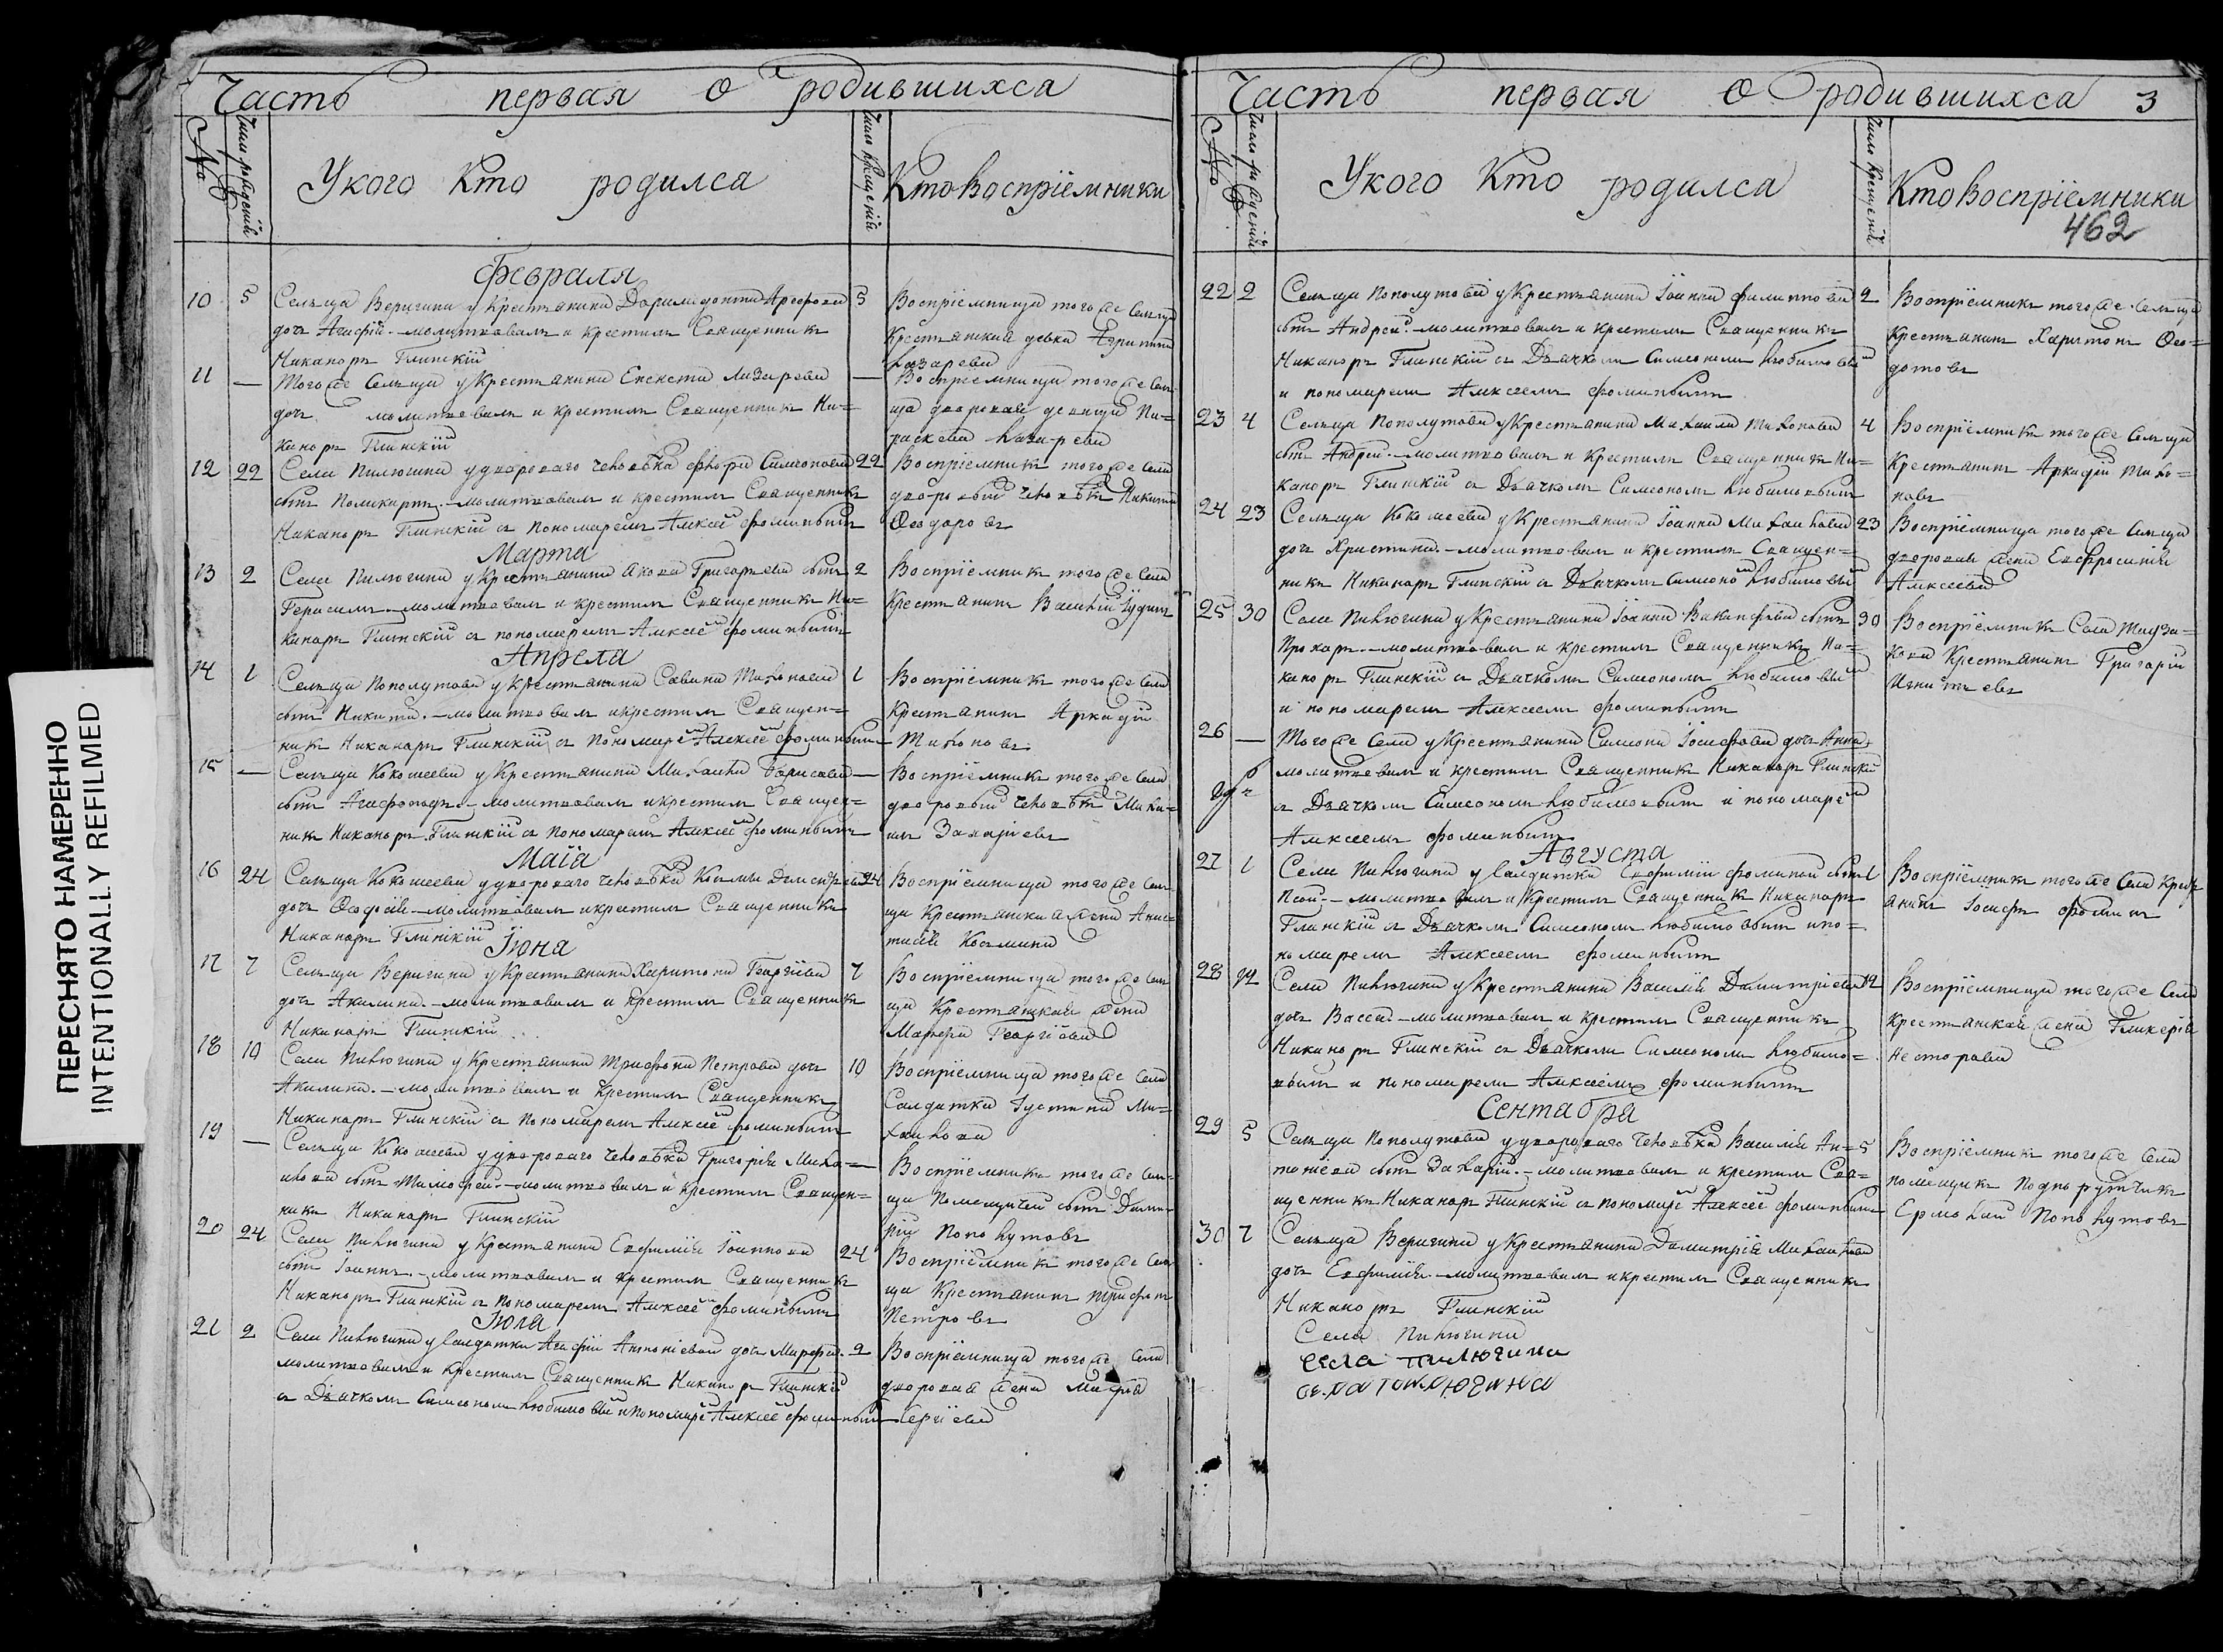 ПЕРЕСНЯТО НАМЕРЕННО
INTENTIONALLY REFILMED
Часть первая о родившихса
№
Число рождения
Укого Кто родилса
Число крещения
Кто воспріемники
Февраля
10 5 Сельца Веригина у Крестьянина 5
дочь Агафія. – молитвовалъ и крестилъ Священникъ
Никаноръ Глинскій
Воспріемница того же сельца
Крестьянская девка
Лазарева
11 — Того же сельца у Крестьянина Лазарева —
дочь молитвовалъ и крестилъ Священникъ Ни=
каноръ Глинскій
Воспріемница того же сель
ца дворовая девица Па=
раскева Лазарева
12 22 Села Пилюгина у двороваго человѣка Флора Симеонова 22
сынъ Поликарпъ. – молитвовалъ и крестилъ Священникъ
Никаноръ Глинскій съ пономаремъ Алексѣе Фоминымъ
Воспріемникъ того же села
дворовый человѣкъ Никита
Ѳеодоровъ
Марта
13 2 Села Пилюгина у Крестьянина Якова Григорьева сынъ 2
Герасимъ. – молитвовалъ и крестилъ Священникъ Ни=
каноръ Глинскій съ пономаремъ Алексѣе Фоминымъ
Воспріемникъ того же села
Крестьянинъ Василій Іудинъ
Апреля
14 1 Сельца Пополутова у Крестьянина Савина Тихонова 1
сынъ Никита. – молитвовалъ и крестилъ Священ=
никъ Никаноръ Глинскій съ пономаре Алексѣе Фоминымъ
Воспріемникъ того же села
Крестьянинъ Аркадій
Тихоновъ
15 — Сельца Кокошеева у Крестьянина Михаила Борисова —
сынъ Агафоподъ. – молитвовалъ и крестилъ Священ=
никъ Никаноръ Глинскій съ пономаремъ Алексѣе Фоминымъ
Воспріемникъ того же села
дворовый человѣкъ Миха=
илъ Захаріевъ
Маія
16 24 Сельца Кокошеева у двороваго человѣка Космы 24
дочь Ѳеодосія. – молитвовалъ и крестилъ Священникъ
Никаноръ Глинскій
Воспріемница того же сель
ца Крестьянская жена Анас=
тасія Космина
Іюня
17 7 Сельца Веригина у Крестьянина Харитона Георгіева 7
дочь Акилина. – молитвовалъ и крестилъ Священникъ
Никаноръ Глинскій
Воспріемница того же сель
ца Крестьянская жена
Марфа Георгіева
18 10 Села Пилюгина у Крестьянина Трифона Петрова дочь 10
Акилина. – молитвовалъ и крестилъ Священникъ
Никаноръ Глинскій съ пономаремъ Алексѣе Фоминымъ
Воспріемница того же села
Салдатка Іустина Ми=
хайлова
19 — Сельца Кокошеева у двороваго человѣка Григорія Миха= —
илова сынъ Тимофей. – молитвовалъ и крестилъ Священ=
никъ Никаноръ Глинскій
Воспріемникъ того же сель=
ца Помещичей сынъ Димит
рій Пополутовъ
20 24 Села Пилюгина у Крестьянина Евфимія Іоаннова 24
сынъ Іоаннъ. – молитвовалъ и крестилъ Священникъ
Никаноръ Глинскій съ пономаремъ Алексѣе Фоминымъ
Воспріемникъ того же сель
ца Крестьянинъ Трифонъ
Петровъ
Іюля
21 2 Села Пилюгина у Салдатки Агафіи Антоніевой дочь Марфа. 2
молитвовалъ и крестилъ Священникъ Никаноръ Глинскій
съ Дьячкомъ Симеономъ Любимовый и пономаре Алексѣе Фоминымъ
Воспріемница того же села
дворовая жена
Сергіева
Часть первая о родившихса 3
№
Число рождения
Укого Кто родилса
Число Крещения
Кто воспріемники
462
22 2 Сельца Пополутова у Крестьянина Іоанна Филиппова 2
сынъ Андрей. – молитвовалъ и крестилъ Священникъ
Никаноръ Глинскій съ Дьячкомъ Симеономъ Любимовы
и пономаремъ Алексѣемъ Фоминымъ
Воспріемникъ того же сельца
Крестьянинъ Харитонъ Ѳео=
дотовъ
23 4 Сельца Пополутова у Крестьянина Михаила Тихонова 4
сынъ Андрей. – молитвовалъ и крестилъ Священникъ Ни=
каноръ Глинскій съ Дьячкомъ Симеономъ Любимовымъ
Воспріемникъ того же сельца
Крестьянинъ Аркадій Тихо=
новъ
24 23 Сельца Кокошеева у Крестьянина Іоанна Михайлова 23
дочь Христина. – молитвовалъ и крестилъ Священ=
никъ Никаноръ Глинскій съ Дьячкомъ Симеоно Любимовы
Воспріемница того же сельца
дворовая жена Евфросинія
Алексѣева
25 30 Села Пилюгина у Крестьянина Іоанна сынъ 30
Прохоръ. – молитвовалъ и крестилъ Священникъ Ни=
каноръ Глинскій съ Дьячкомъ Симеономъ Любимовы
и пономаремъ Алексѣемъ Фоминымъ
Воспріемникъ Села
Крестьянинъ Григорій
Игнатьевъ
26 — Того же села у Крестьянина Симеона Іосифова дочь Анна
молитвовалъ и крестилъ Священникъ Никаноръ Глинскій
съ Дьячкомъ Симеономъ Любимовымъ и пономаре
Алексѣемъ Фоминымъ
Августа
27 1 Села Пилюгина у Салдатки Евфиміи Фоминой сынъ 1
– молитвовалъ и Крестилъ Священникъ Никаноръ
Глинскій съ Дьячкомъ Симеономъ Любимовымъ и по=
номаремъ Алексѣемъ Фоминымъ
Воспріемникъ того же села Кресть
янинъ Іосифъ Фоминъ
28 Села Пилюгина у Крестьянина Василія Димитріева
дочь Васса. – молитвовалъ и крестилъ Священникъ
Никаноръ Глинскій съ Дьячкомъ Симеономъ Любимо=
вымъ и пономаремъ Алексѣемъ Фоминымъ
Воспріемница того же села
Крестьянская жена Гликерія
Несторова
Сентабра
29 5 Сельца Пополутова у двороваго человѣка Василія Ан= 5
тоніева сынъ Захарій. – молитвовалъ и крестилъ Свя=
щенникъ Никаноръ Глинскій съ пономаре Алексѣе Фоминымъ
Воспріемникъ того же села
помещикъ Подпорутчикъ
Ермолай Пополутовъ
30 7 Сельца Веригина у Крестьянина Димитрія Михайлова
дочь Евфимія. – молитвовалъ и крестилъ Священникъ
Никаноръ Глинскій
Села Пилюгина
села пилюгина
села пилюгина